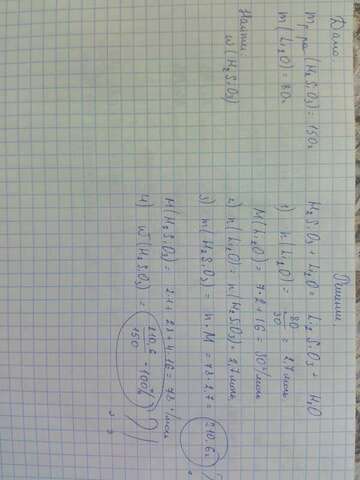 Дано:
m р-ра (H₂SiO₃) = 150г
m(Li₂O) = 80г
Найти:
ω(H₂SiO₃)
Решение
H₂SiO₃ + Li₂O = Li₂SiO₃ + H₂O
1) n(Li₂O) = 80/30 = 2,7 моль
M(Li₂O) = 7·2+16 = 30 г/моль
2) n(Li₂O) = n(H₂SiO₃) = 2,7 моль
3) m(H₂SiO₃) = n·M = 78·2,7 = 210,6г
M(H₂SiO₃) = 2·1+28+ 16 = 78 г/моль
4) ω(H₂SiO₃) = 210,6·100%/150